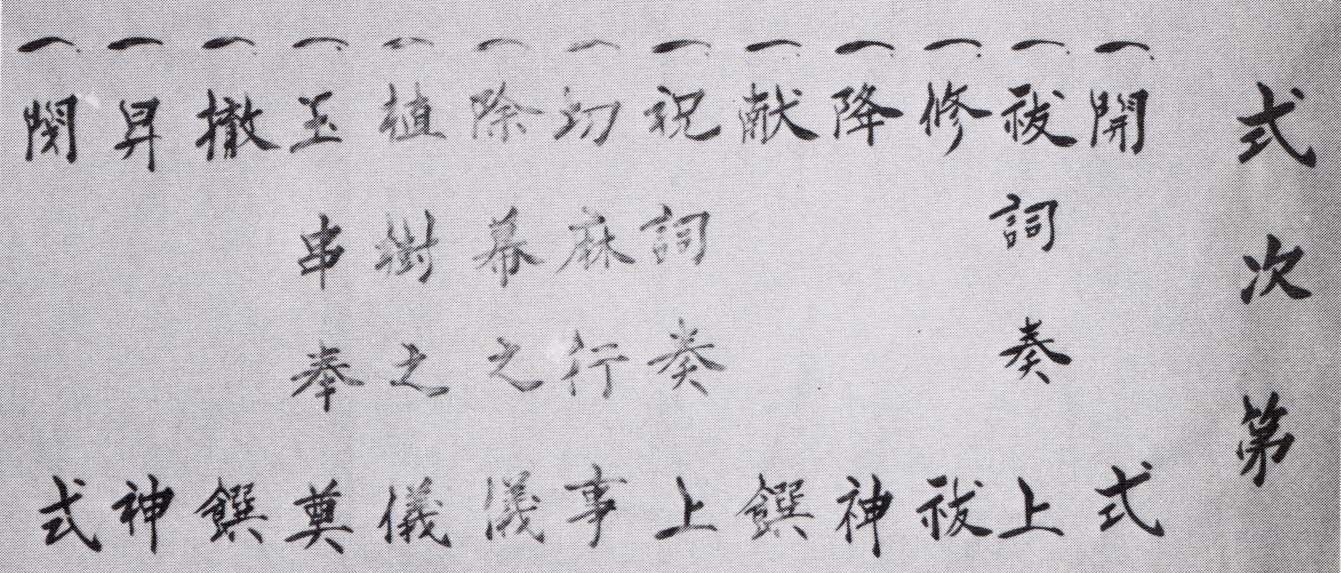 式次第
一、開式
一、祓詞奏上
一、修祓
一、降神
一、献饌
一、祝詞奏上
一、切麻行事
一、除幕之儀
一、植樹之儀
一、玉串奉奠
一、撤饌
一、昇神
一、閉式